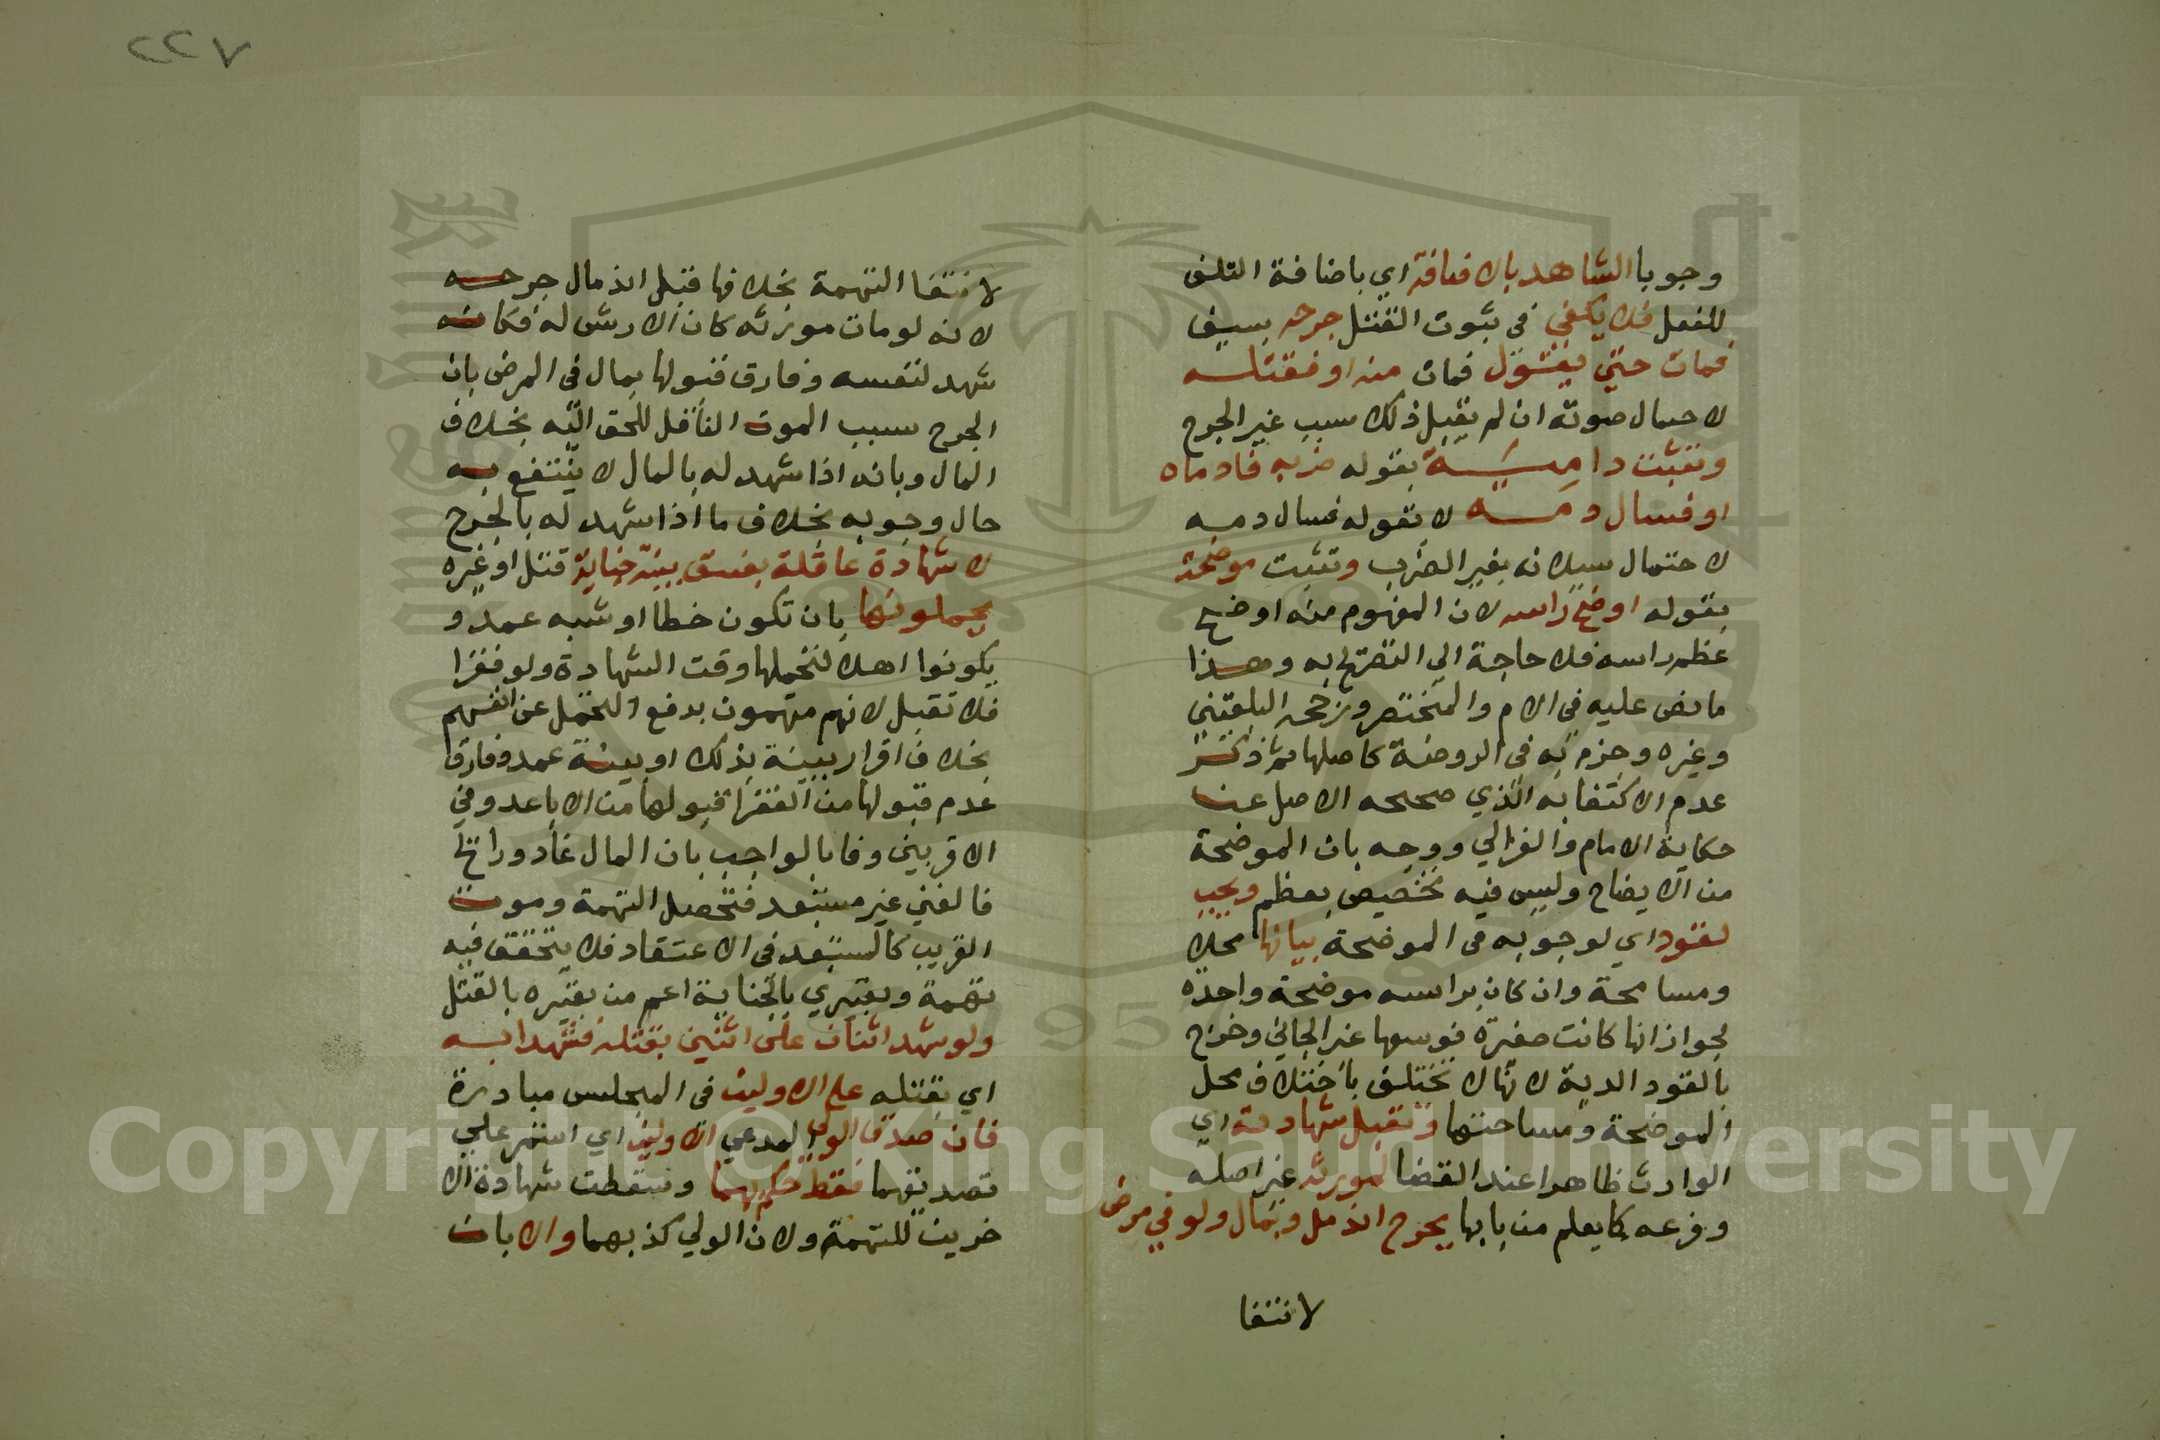 ٢٢٧
وجوبا الشاهد بالاضافة اي باضافة التلف
للفعل فلا يكفي في ثبوت القتل جرحه بسيف
فمات حتي يقول فمات منه او فقتله
لاحتمال موته ان لم يقبل ذلك سبب غير الجرح
وتثبت دامية بقوله ضربه فادماه
او فسال دمه لا بقوله فسال دمه
لاحتمال سيلانه بغير الضرب وتثبت موضحة
بقوله اوضح راسه لان المفهوم منه اوضح
عظم راسه فلا حاجة الي التصريح به وهذا
ما نص عليه في الام والمختصر ورجحه البلقيني
وغيره وجزم به في الروضة كاصلها ثم ذكر
عدم الاكتفا به الذي صححه الاصل عن
حكاية الامام والغزالي ووجه بان الموضحة
من الايضاح وليس فيه تخصيص بعظم ويجب
لقود اي لوجوبه في الموضحة بيانها محلا
ومساحة وان كان براسه موضحة واحدة
لجواز انها كانت صغيرة فوسعها غير الجاني وخرج
بالقود الدية لانها لا تختلف باختلاف محل
الموضحة ومساحتها وتقبل شهادته اي
الوارث ظاهرا عند القضا لمورثه غير اصله
وفرعه كما يعلم من بابها بجرح اندمل وبمال ولو في مرض
لانتفا
لانتفا التهمة بخلافها قبل اندمال جرحه
لانه لو مات مورثه كان الارش له فكانه
شهد لنفسه وفارق قبولها بمال في المرض بان
الجرح سبب الموت الناقل للحق اليه بخلاف
المال وبانه اذا شهد له بالمال لا ينتفع به
حال وجوبه بخلاف ما اذا شهد له بالجرح
لا شهادة عاقلة بفسق بينة جناية قتل او غيره
يحملونها بان تكون خطا او شبه عمد و
يكونوا اهلا لتحملها وقت الشهادة ولو فقرا
فلا تقبل لانهم متهمون بدفع التحمل عن انفسهم
بخلاف اقرار ببينة بذلك او بينة عمد وفارق
عدم قبولها من الفقرا قبولها من الاباعد وفي
الاقربين وفا بالواجب بان المال غاد ورائح
فالغني غير مستبعد فتحصل التهمة وموت
القريب كالمستبعد في الاعتقاد فلا يتحقق فيه
تهمة وتعبيري بالجناية اعم من تعبيره بالقتل
ولو شهد اثنان علي اثنين بقتله فشهدا به
اي بقتله علي الاولين في المجلس مبادرة
فان صدق الولي المدعي الاولين اي استمر علي
تصديقهما فقط حكم بهما وسقطت شهادة الا
خرين للتهمة ولان الولي كذبهما والا بان
Copyright © King Saud University